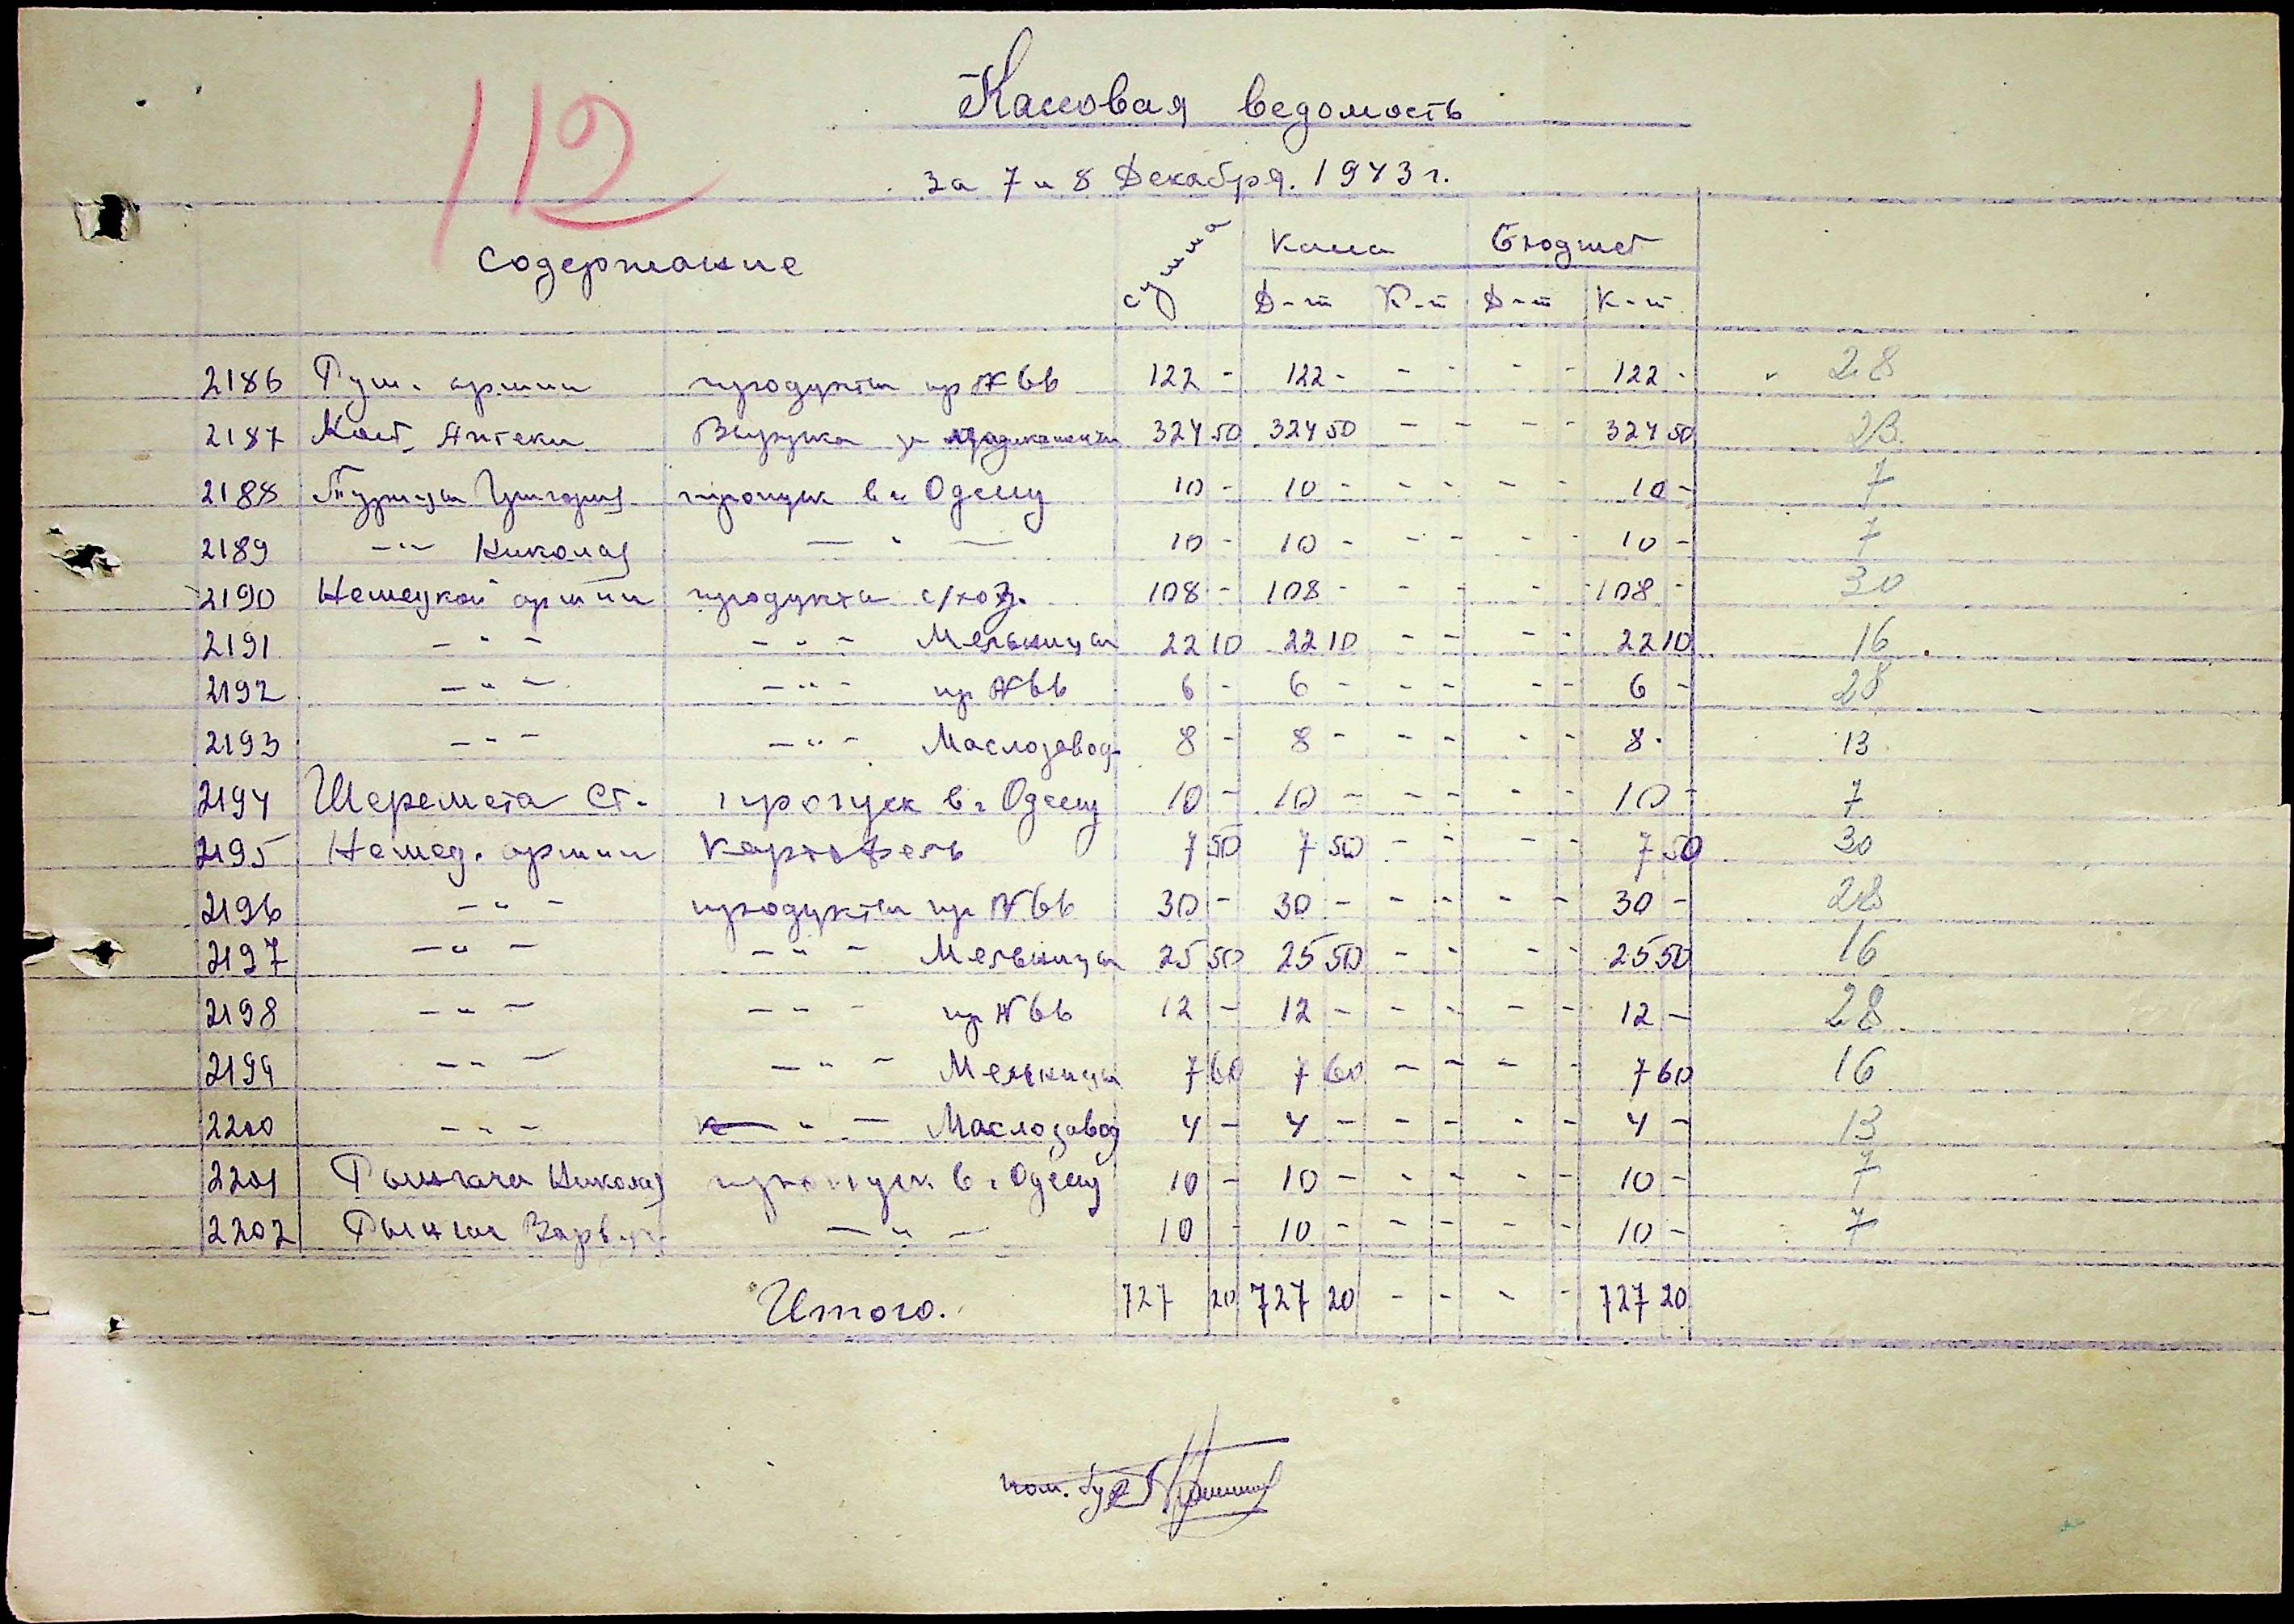 112
Кассовая ведомость
за 7 и 8 Декабря. 1943 г.
Содержание сумма Касса Бюджет
Д-т К-т Д-т К-т
2186 Рум. армии продукты пр №66 122 - 122 - - - - - 122 - 28
2187 Завед. Аптеки Выручка за медикаменты 324 50 324 50 - - - - 324 50 23
2188 Григория пропуск в г. Одессу 10 - 10 - - - - - 10 - 7
2189 -"- Николая - " - 10 - 10 - - - - - 10 - 7
2190 Немецкой армии продукты с/хоз. 108 - 108 - - - - - 108 - 30
2191 - " - - " - Мельницы 22 10 22 10 - - - - 22 10 16
2192 - " - - " - пр №66 6 - 6 - - - - - 6 - 28
2193 - " - - " - Маслозавод. 8 - 8 - - - - - 8 - 13
2194 Шеремета Ст. пропуск в г. Одессу 10 - 10 - - - - - 10 - 7
2195 Немец. армии Картофель 7 50 7 50 - - - - 7 50 30
2196 - " - продукты пр №66 30 - 30 - - - - - 30 - 28
2197 - " - - " - Мельницы 25 50 25 50 - - - - 25 50 16
2198 - " - - " - пр №66 12 - 12 - - - - - 12 - 28
2199 - " - - " - Мельницы 7 60 7 60 - - - - 7 60 16
2200 - " - - " - Маслозавод 4 - 4 - - - - - 4 - 13
2201 Николая пропуск в г. Одессу 10 - 10 - - - - - 10 - 7
2202 - " - 10 - 10 - - - - - 10 - 7
Итого. 727 20 727 20 - - - - 727 20
пом. бух